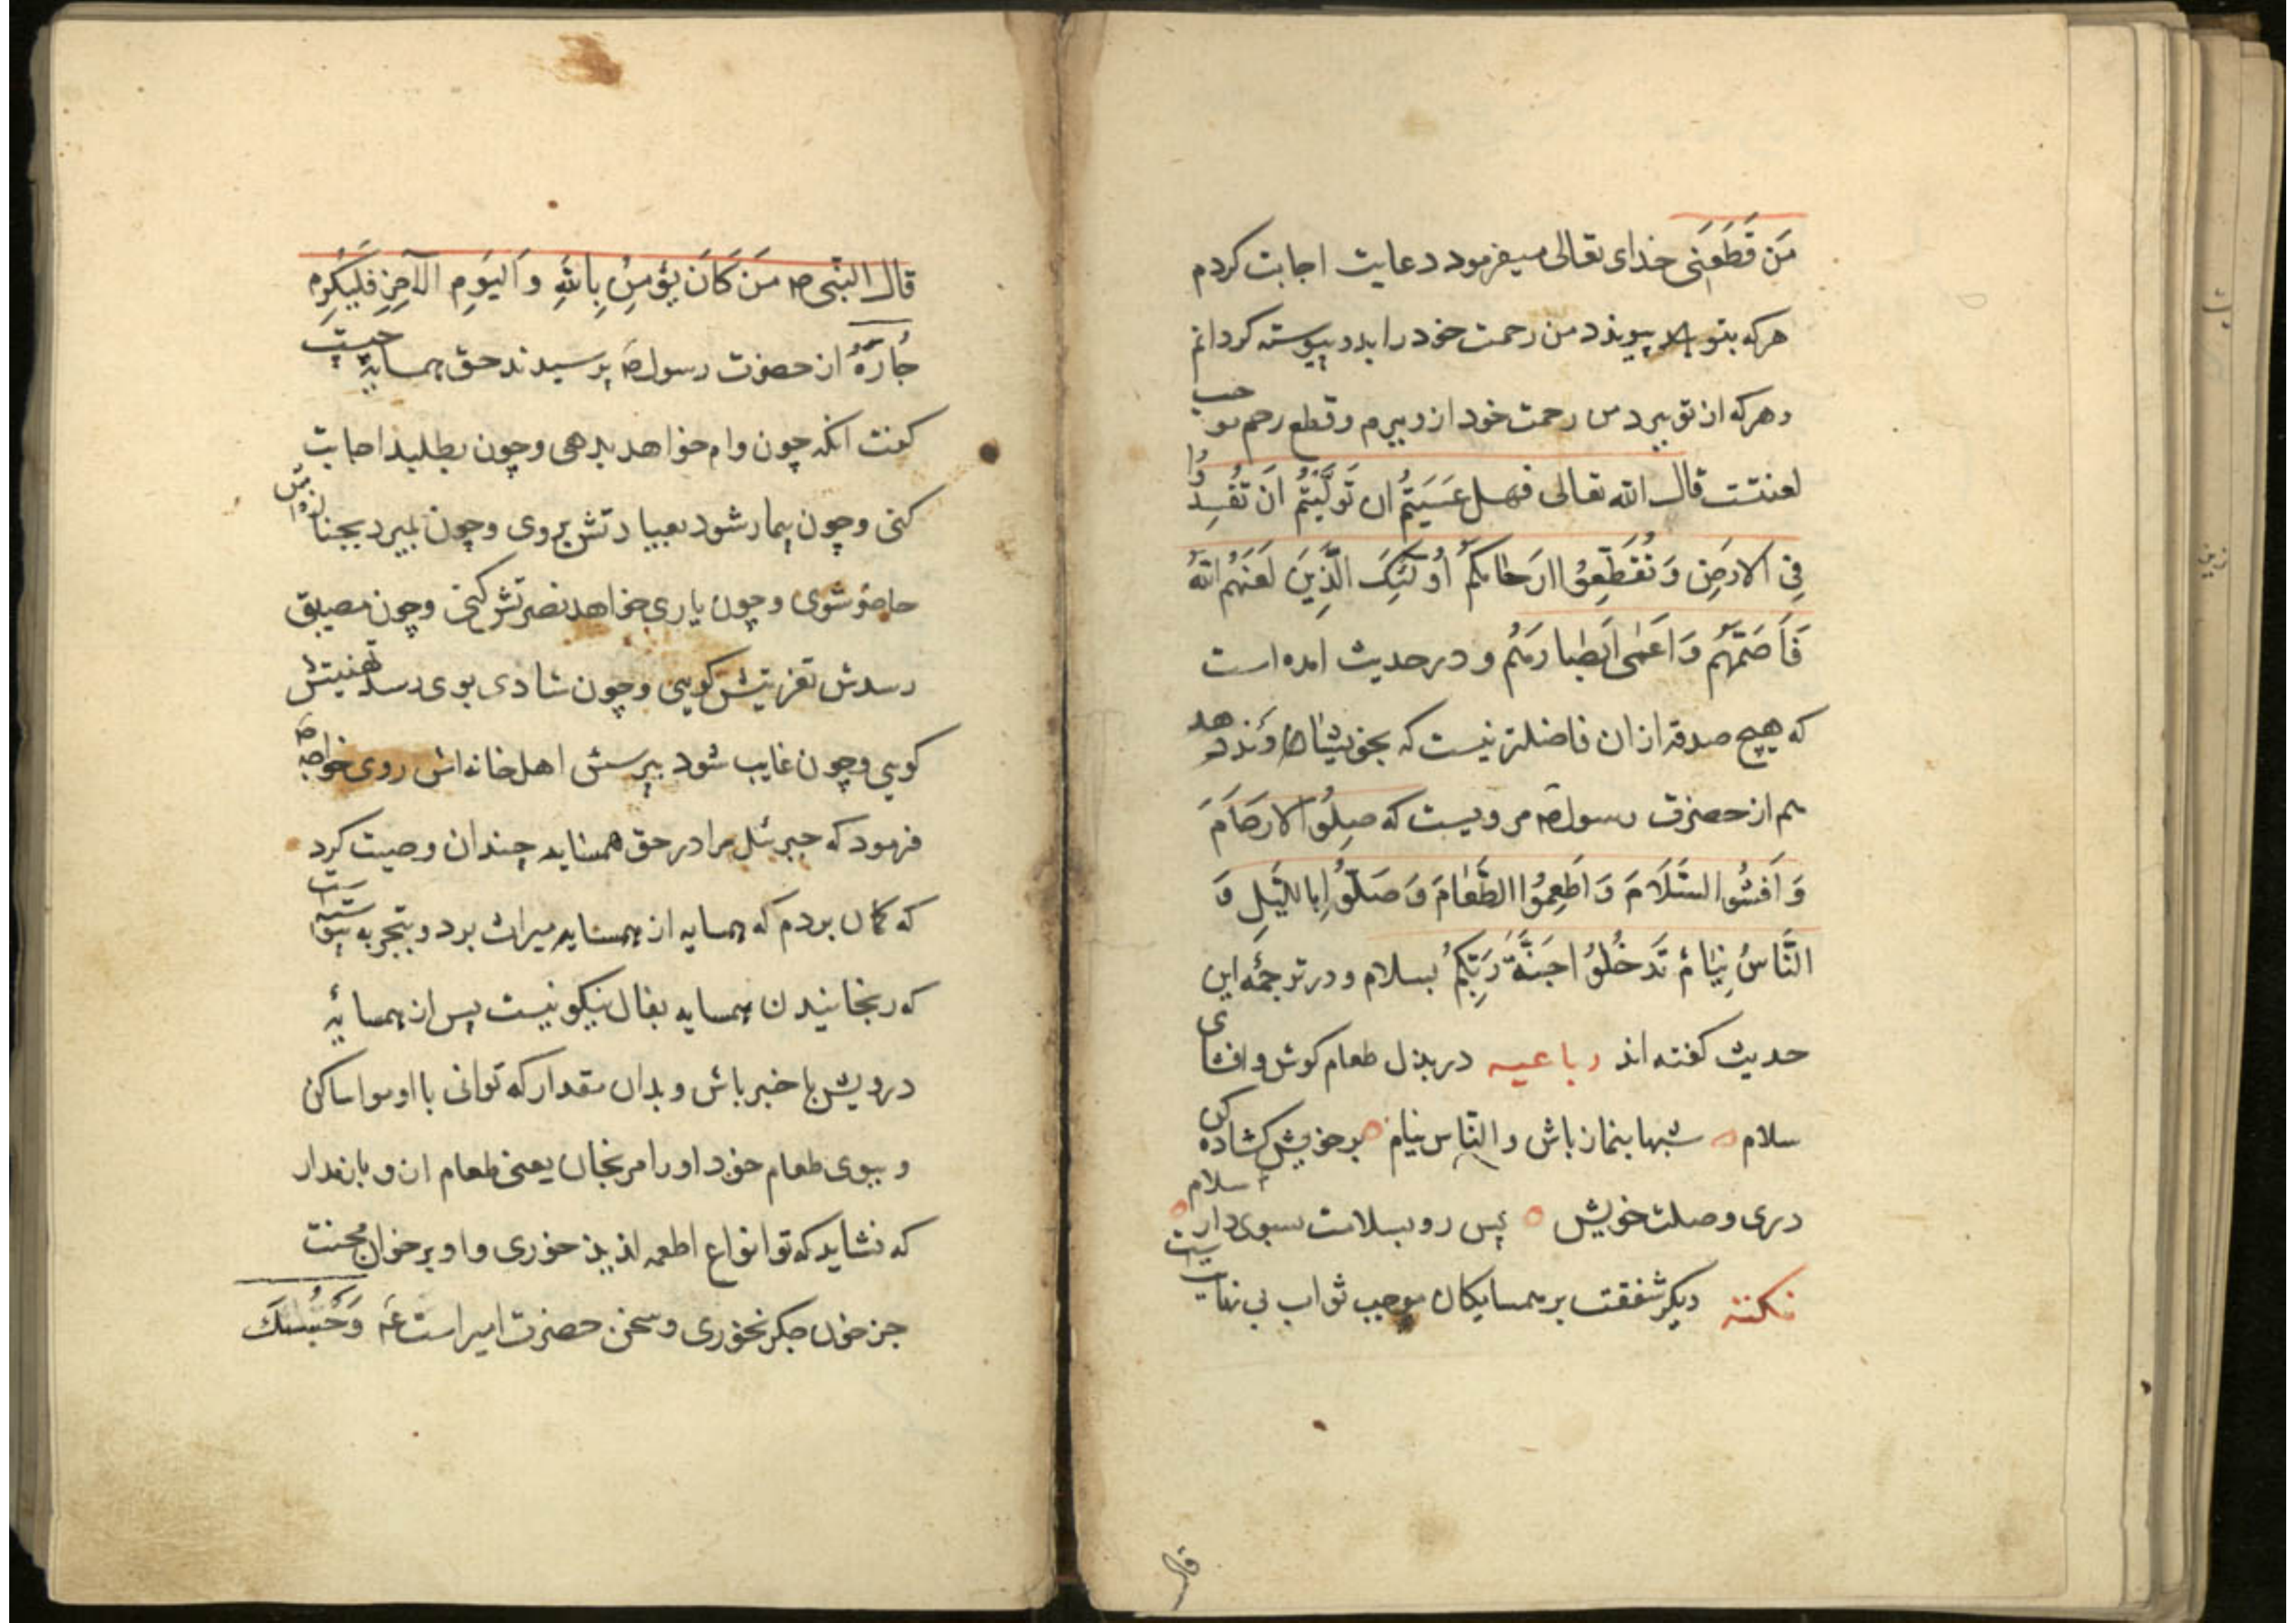 مَن قَطَعَنی خدای تعالی میفرمود دعایت اجابت کردم
هرکه بتو پیوندد من رحمت خود را بدو پیوسته کردانم
وهرکه از تو ببرد من رحمت خود ازو ببرم و قطع رحم موجب
لعنتت قال الله تعالی فهل عَسَیتُم ان تَوَلَّیتُم اَن تُفسِدُوا
فِی الارضِ وَ تُقَطِّعُوا ارَحامَکُم اُولٰئِکَ الَّذِینَ لَعَنَهُم اللّٰهُ
فَاَصَمَّهُم وَ اَعمٰی اَبصٰارَهُم و در حدیث امده است
که هیچ صدقه ازان فاضلتر نیست که بخویشاوند دهد
هم از حضرت رسول ص مرویست که صِلُوا الارحَامَ
وَ اَفشُوا السَّلَامَ وَ اَطعِمُوا الطَّعَامَ وَ صَلُّوا بِاللَّیلِ وَ
النَّاسُ نِیَامٌ تَدخُلُوا جَنَّةَ رَبِّکُم بسلام و در ترجمهٔ این
حدیث کفته اند رباعیه در بذل طعام کوش و افشای
سلام شبها بنماز باش و الناس نیام بر خویش کشاده کن
دری وصلت خویش پس رو بسلامت بسوی دار سلام
نکته دیکر شفقت بر همسایکان موجب ثواب بی نهایت است
قال
قال النبی ص مَن کَانَ یُؤمِنُ بِاللّٰهِ وَ الیَومِ الآخِرِ فَلیُکرِم
جَارَهُ از حضرت رسول ص پرسیدند حق همسایه چیست
کفت انکه چون وام خواهد بدهی و چون بطلبد اجابت
کنی و چون بیمار شود بعیادتش بروی و چون بمیرد بجنازه اش
حاضر شوی و چون یاری خواهد نصرتش کنی و چون مصیبتی
رسدش تعزیتش کویی و چون شادی بوی رسد تهنیتش
کویی و چون غایب شود بپرسش اهل خانه اش روی خواجه ص
فرمود که جبرئیل مرا در حق همسایه چندان وصیت کرد
که کمان بردم که همسایه از همسایه میراث برد و بتجربه پیوسته است
که رنجانیدن همسایه بفال نیکو نیست پس از همسایهٔ
درویش با خبر باش و بدان مقدار که توانی با او مواسا کن
و ببوی طعام خود او را مرنجان یعنی طعام ازو باز مدار
که نشاید که تو انواع اطعمه لذیذ خوری و او بر خوان محنت
جز خون جکر نخوری و سخن حضرت امیر است ع وَحَسبُکَ